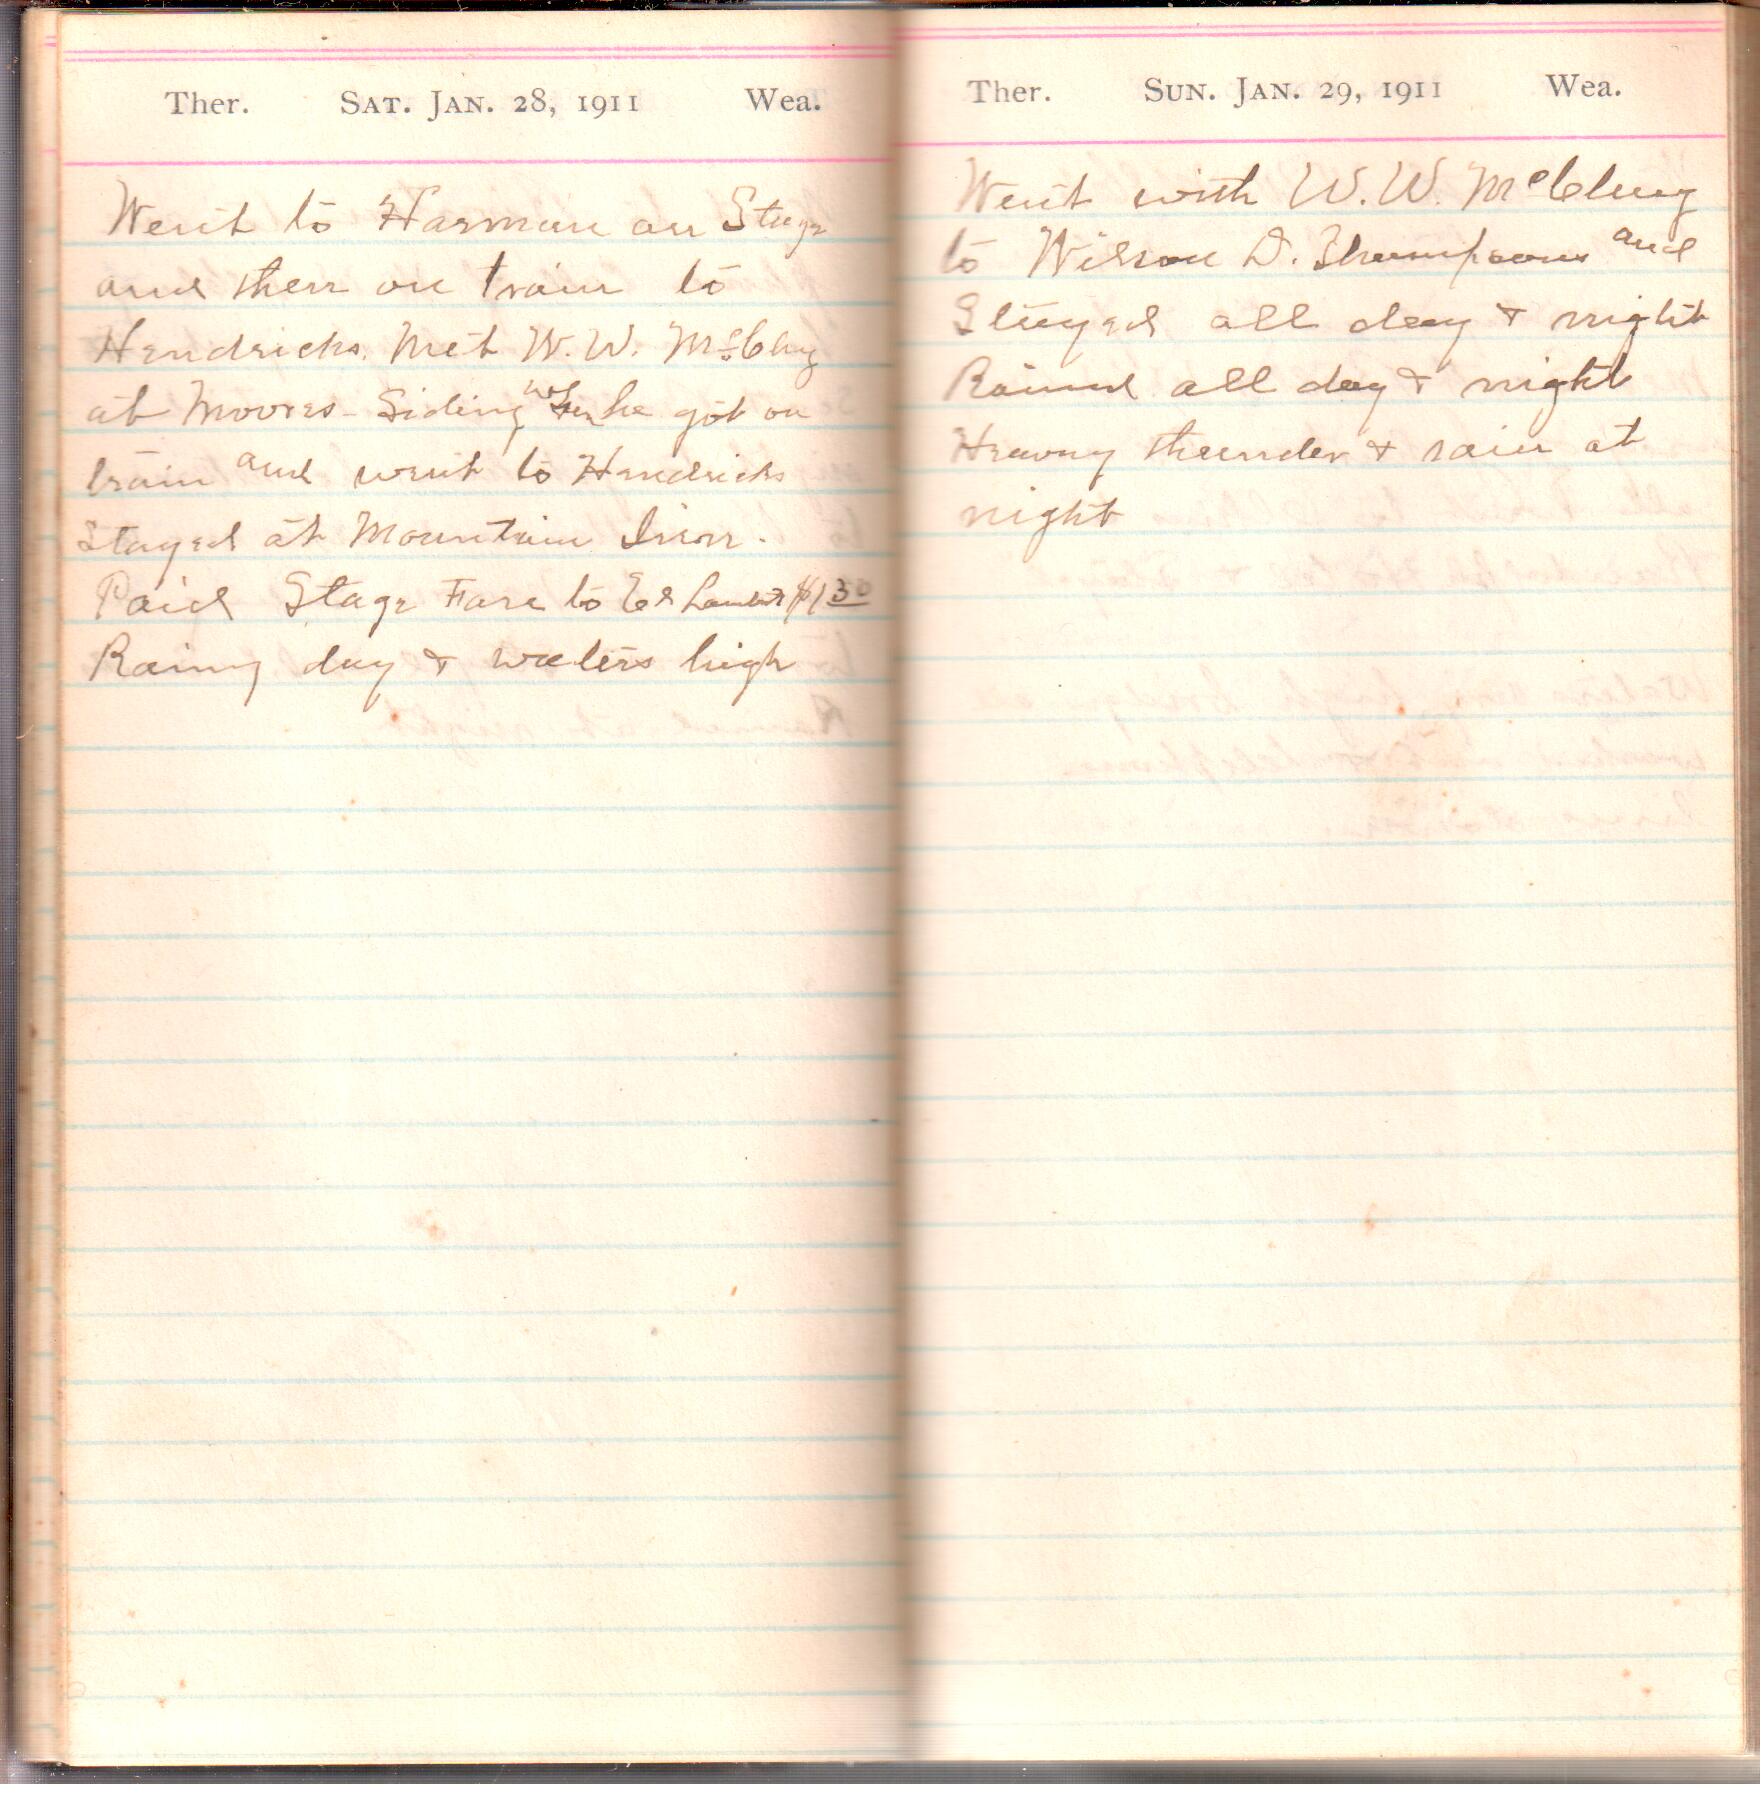 Ther. SAT. JAN. 28, 1911 Wea.
Went to Harman on Stage
and then on train to
Hendricks. Met W. W. McClung
at Moores Siding when he got on
train and went to Hendricks
Stayed at Mountain Inn.
Paid Stage Fare to Ed Lambert $1 30
Rainy day & waters high
Ther. SUN. JAN. 29, 1911 Wea.
Went with W. W. McClung
to Wilson D. Thompsons and
Stayed all day & night
Rained all day & night
Heavy thunder & rain at
night